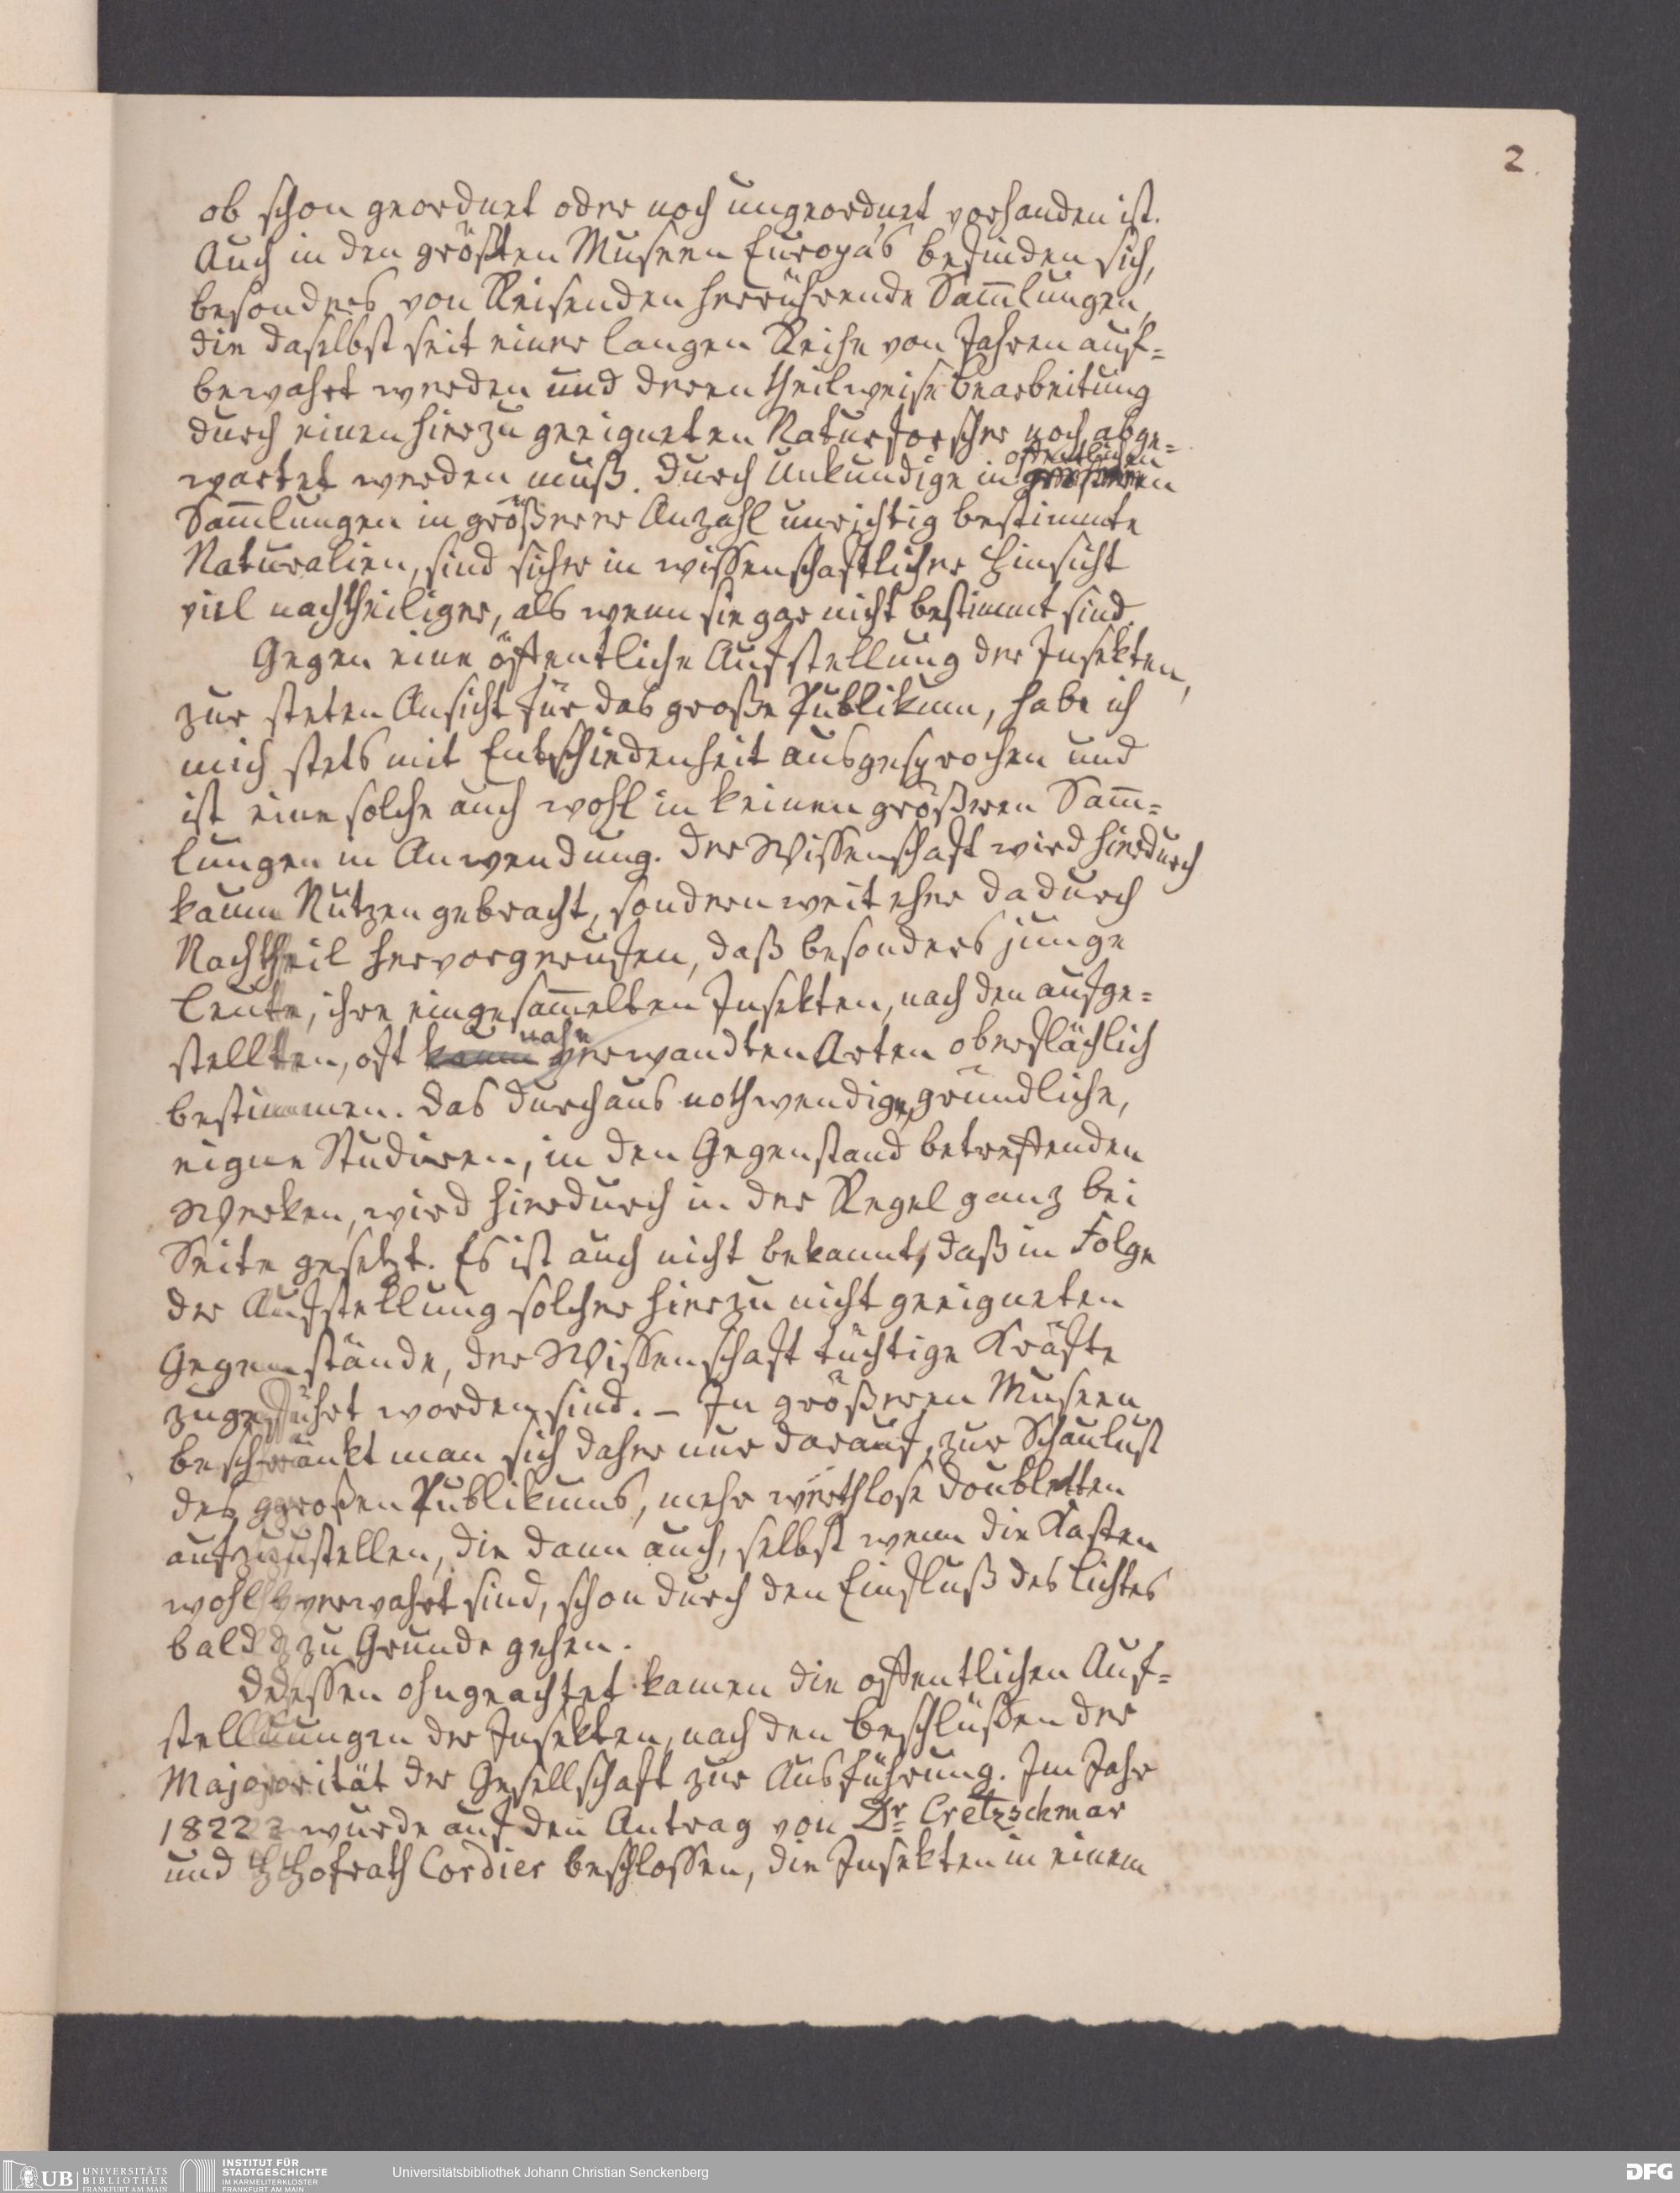 2
ob schon geordnet oder noch ungeordnet vorhanden ist.
Auch in den größten Museen Europa's befinden sich,
besonders von Reisenden herrührende Sam̄lungen,
die daselbst seit einer langen Reihe von Jahren auf=
bewahrt werden und deren theilweise Bearbeitung
durch einen hierzu geeigneten Naturforscher noch abge=
öffentlichen
wartet werden muß. Durch Unkundige in größeren
Sam̄lungen in größerer Anzahl unrichtig bestimmte
Naturalien, sind sicher in wissenschaftlicher Hinsicht
viel nachtheiliger, als wenn sie gar nicht bestimmt sind.
Gegen eine öffentliche Aufstellung der Insekten,
zur steten Ansicht für das große Publikum, habe ich
mich stets mit Entschiedenheit ausgesprochen und
ist eine solche auch wohl in keinen größeren Sam̄=
lungen in Anwendung. Der Wissenschaft wird hierdurch
kaum Nutzen gebracht, sondern weit eher dadurch
Nachtheil hervorgerufen, daß besonders junge
Leute, ihre eingesam̄elten Insekten, nach den aufge=
nahe
stellten, oft kaum verwandten Arten oberflächlich
bestimmen. Das durchaus nothwendige, gründliche,
eigne Studiren, in den Gegenstand betreffenden
Werken, wird hierdurch in der Regel ganz bei
Seite gesetzt. Es ist auch nicht bekannt, daß in Folge
der Aufstellung solcher hierzu nicht geeigneten
Gegenstände, der Wissenschaft tüchtige Kräfte
zugeführt worden sind. – In größeren Museen
beschränkt man sich daher nur darauf, zur Schaulust
des großen Publikums, mehr werthlose Doubletten
aufzustellen, die dann auch, selbst wenn die Kasten
wohl verwahrt sind, schon durch den Einfluß des Lichtes
bald zu Grunde gehen.
Dessen ohngeachtet kamen die öffentlichen Auf=
stellungen der Insekten, nach den Beschlüßen der
Majorität der Gesellschaft zur Ausführung. Im Jahr
1822 wurde auf den Antrag von Dr Cretzschmar
und Hofrath Cordier beschlossen, die Insekten in einem
UB UNIVERSITÄTS
BIBLIOTHEK
FRANKFURT AM MAIN
INSTITUT FÜR
STADTGESCHICHTE
IM KARMELITERKLOSTER
FRANKFURT AM MAIN
Universitätsbibliothek Johann Christian Senckenberg
DFG